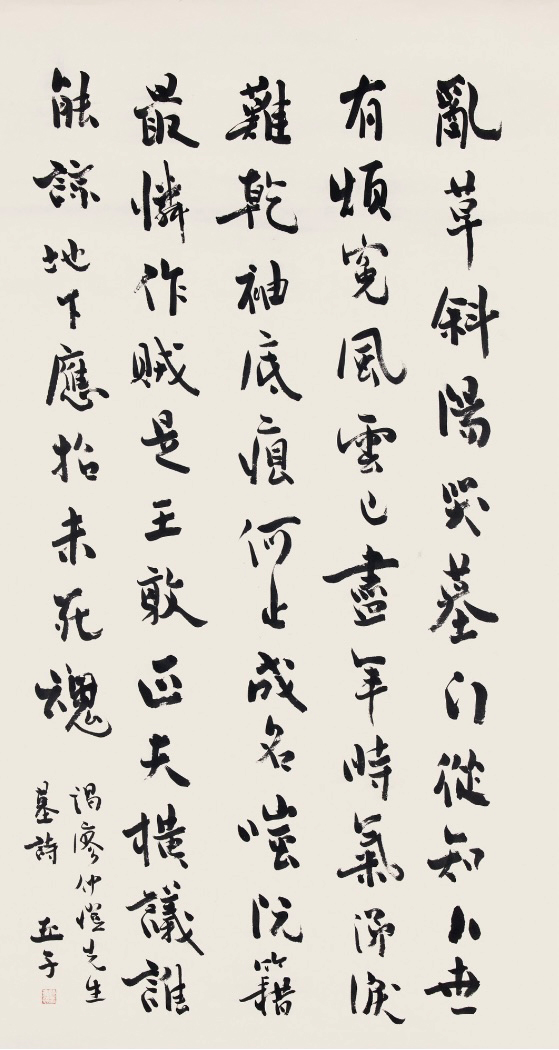 亂草斜陽哭墓門從知人世
有煩冤風雲已盡年時氣涕淚
難乾袖底痕何止成名嗤阮籍
最憐作賊是王敦匹夫橫議誰
能諒地下應招未死魂
謁廖仲愷先生
墓詩 亞子